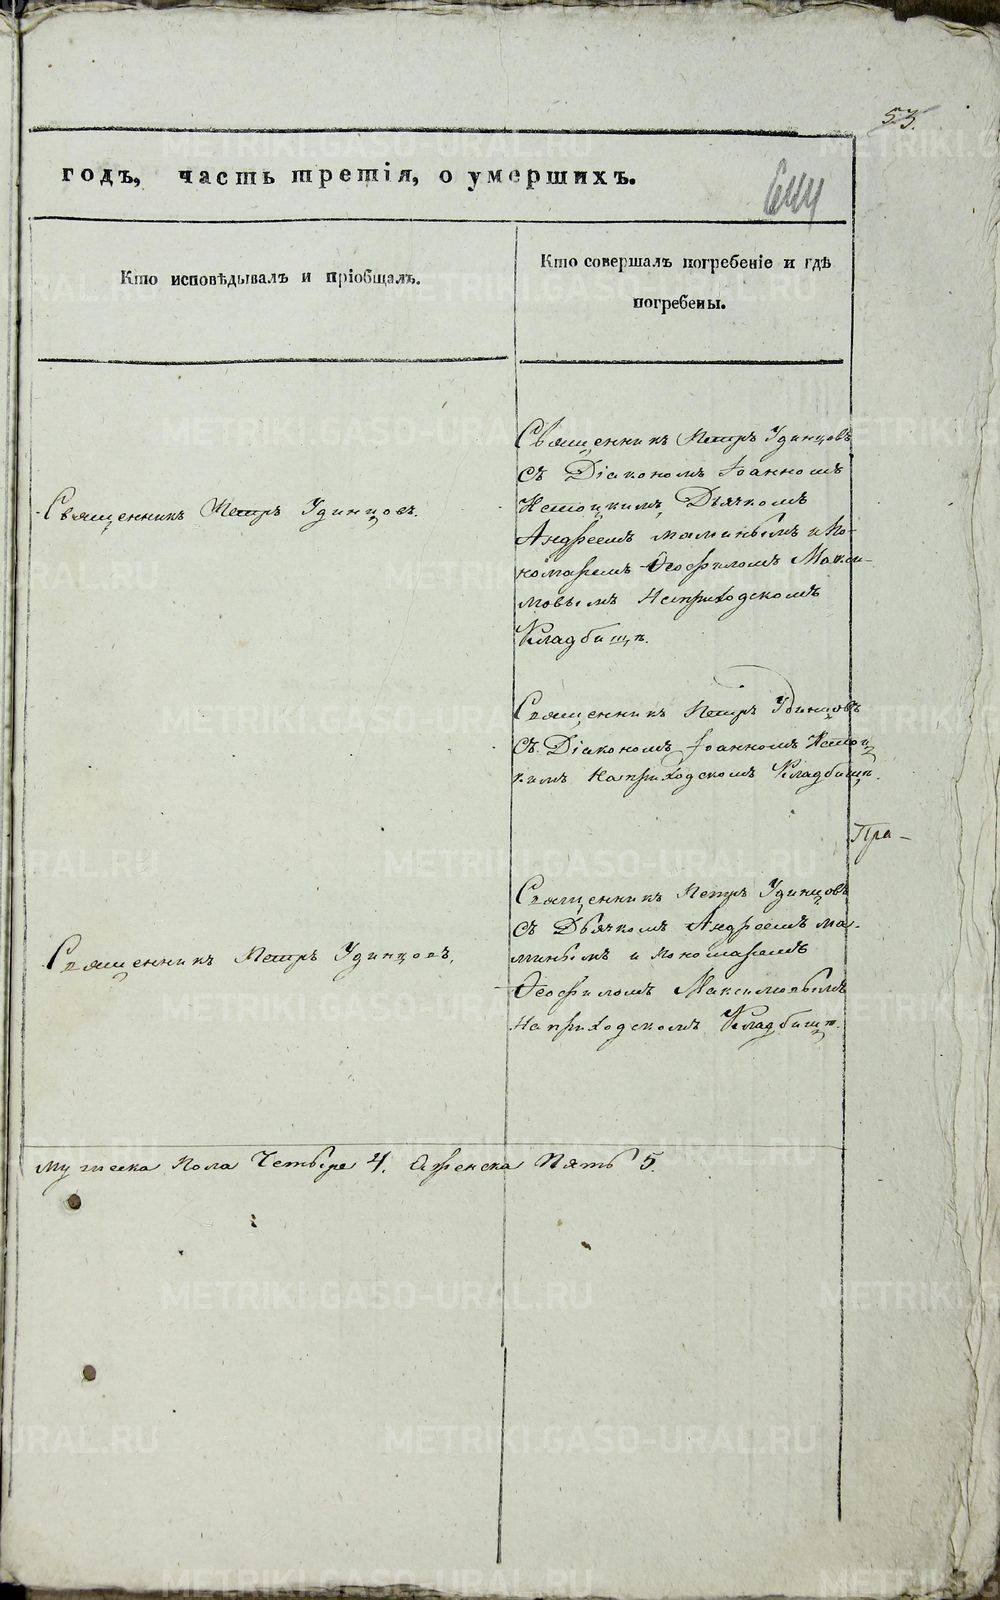 53.
годъ, часть третія, о умершихъ.
644
Кто исповѣдывалъ и пріобщалъ.
Кто совершалъ погребеніе и гдѣ
погребены.
Священникъ Петръ Удинцовъ.
Священникъ Петръ Удинцовъ
съ Діакономъ Іоанномъ
Истоцкимъ, Дьячкомъ
Андреемъ Маминымъ и По-
номаремъ Ѳеофиломъ Макси-
мовымъ На приходскомъ
Кладбищѣ.
Священникъ Петръ Удинцовъ
съ Діакономъ Іоанномъ Истоц
кимъ на приходскомъ Кладбищѣ.
Пра-
Священникъ Петръ Удинцовъ,
Священникъ Петръ Удинцовъ
съ Дьячкомъ Андреемъ Ма-
минымъ и Пономаремъ
Ѳеофиломъ Максимовымъ
На приходскомъ Кладбищѣ.
Мужеска пола Четыре 4. Женска Пять 5.
METRIKI.GASO-URAL.RU